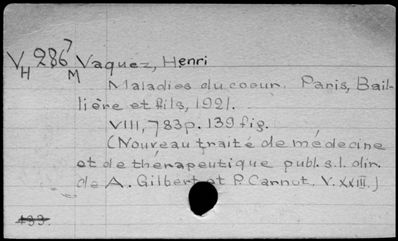 VH 2867 M Vaquez, Henri
Maladies du coeur. Paris, Bail-
lière et fils, 1921.
VIII, 783p. 139 fig.
(Nouveau traité de médecine
et de thérapeutique publ. s.l. dir.
de A. Gilbert et P. Carnot. V. XXIII.)
433.